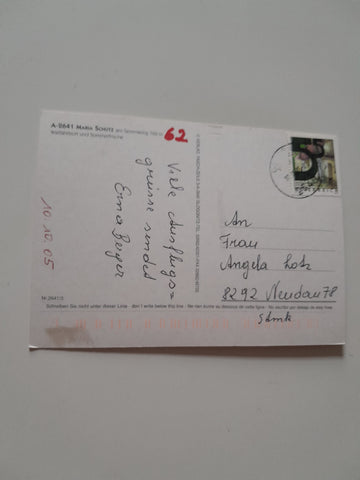 A-8641 MARIA SCHUTZ am Semmering, 760 m
Wallfahrtsort und Sommerfrische
62
Viele Ausflugs=
grüsse sendet
Erna Berger
10.10.05
An
Frau
Angela Lotz
8292 Neudau 78
Stmk
Nr. 2641/3
Schreiben Sie nicht unter dieser Linie - don't write below this line - Ne rien écrire au dessous de cette ligne - No escribir por debajo de esta línea